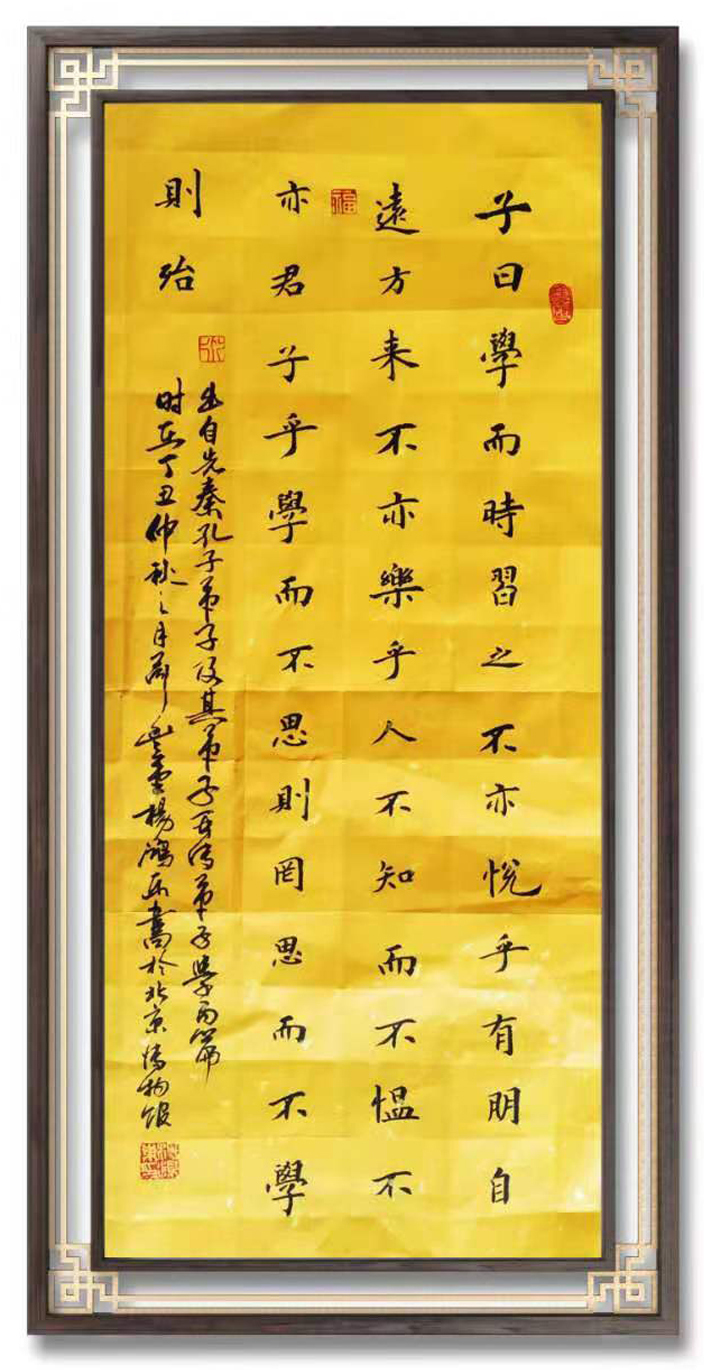 子曰學而時習之不亦悅乎有朋自
遠方来不亦樂乎人不知而不愠不
亦君子乎學而不思則罔思而不學
則殆
出自先秦孔子弟子及其弟子再传弟子學而篇
时在丁丑仲秋之月 楊鴻 書於北京博物馆
福